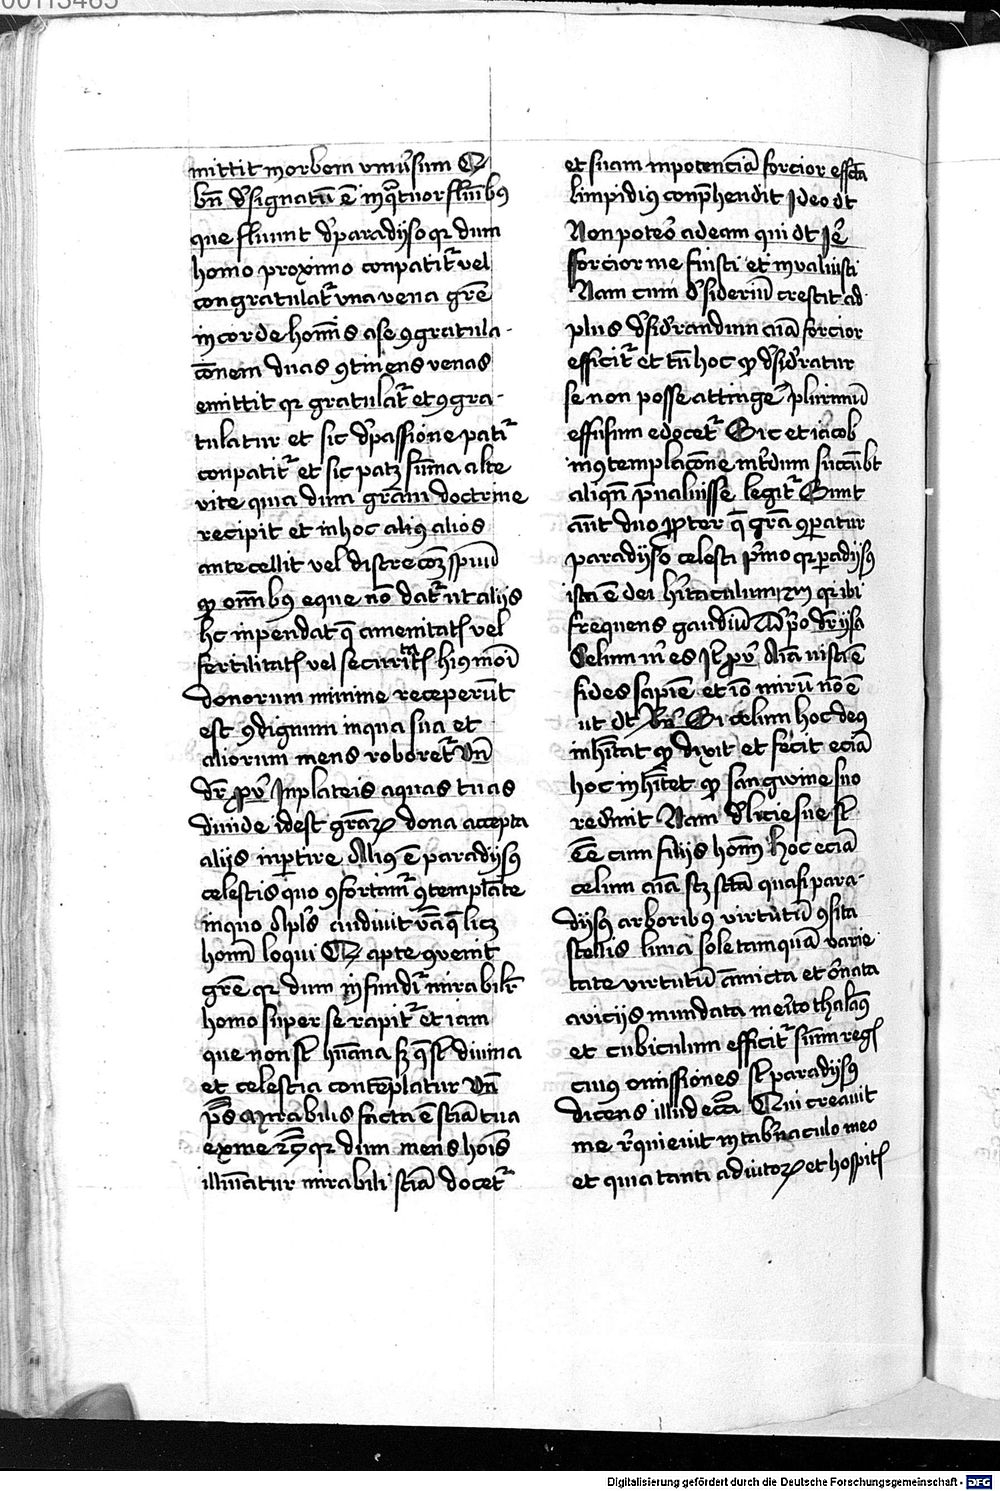 00113465
mittit morbem vniu̾sum Q
bn̄ d̾signatū ē in q̄tuor flūībꝯ
que fluunt d̾paradijso qꝛ dum
homo proximo conpatit᷑ vel
congratulat᷑ vna vena grē
in corde hoīnis a se ꝯgratula-
c̄onem duas ꝯtinens venas
emittit qꝛ gratulat᷑ et ꝯgra-
tulatur et sic d̾passione pati᷑
conpatit᷑ et sic patꝫ sūma alte
vite quia dum grām doctrine
recipit et in hoc aliꝯ alios
antecellit vel discrecōꝫ spūū
qꝫ om̄ibꝯ eque nō dat᷑ ut alijs
hc inpendat q̄ amenitatꝭ vel
fertilitatꝭ vel securitatꝭ hiꝯ mōi
donorum minime receperūt
est ꝯdignum in qua sua et
aliorum mens roboret᷑ Vn̄
dr̄ ꝓv̾ In plateis aquas tuas
diuide idest grāꝝ dona accepta
alijs inꝑtire Aliꝯ ē paradijsꝯ
celestis quo ꝯfortam᷑ ꝯtemplāte
in quo Apl̾s audiuit v̄ba q̄ licꝫ
homī loqui Q apte ꝯuenit
grē qꝛ dum infundi᷑ mirabilr̄
homo super se rapit᷑ et iam
que non st̄ hūana sꝫ q̄ st̄ diuina
et celestia contēplatur Vn̄
p̄s Mirabilis facta ē sciā tua
ex me rc̄ qꝛ dum mens hoīs
illuīatur mirabili sciā docet᷑
et suam inpotenciā forcior effc̄ta
limpidiꝯ conp̄hendit Ideo dt
Non potero ad eam qui dt Je᷑
Forcior me fuisti et inualuisti
Nam cum d̾sideriū crescit ad
plus d̾sid̾randum aīa forcior
efficit᷑ et tn̄ hoc qꝫ d̾sid̾ratur
se non posse attinge᷑ plurimū
effusum edocet᷑ Sic et iacob
in ꝯtemplacōne int̾dum succūbt
aliqn̄ p̄ualuisse legit᷑ Sunt
aūt duo ꝓpter q̄ grā ꝯꝑatur
paradijso celesti p̾mo qꝛ ꝑadijsꝯ
iste ē dei h̾itaculum qꝛ ibi
frequens gaudiū
Celum n̄ es
fides sapiē et iō mirū nō ē
ut dt b̾n̄ Si celum hoc deꝯ
inh̾itat qꝫ dixit et fecit eciā
hoc inh̾itet qꝫ sangwine suo
redimit Nam d̾licie sue st̄
ēē cum filijs homī Hoc eciā
celum aīa scꝫ sc̄tā quasi para-
dijsꝯ arboribꝯ virtutū ꝯsita
stellis luna sole tamquā varie
tate virtutū amicta et ornata
a vicijs mundata meīto thalāꝯ
et cubiculum efficit᷑ sūm regꝭ
cuiꝯ emissiones st̄ paradijsꝯ
dicens illud ecc̄i Qui creauit
me req̾uieuit in tab̾naculo meo
et quia tanti adiutoꝝ et hospitꝭ
Digitalisierung gefördert durch die Deutsche Forschungsgemeinschaft - DFG